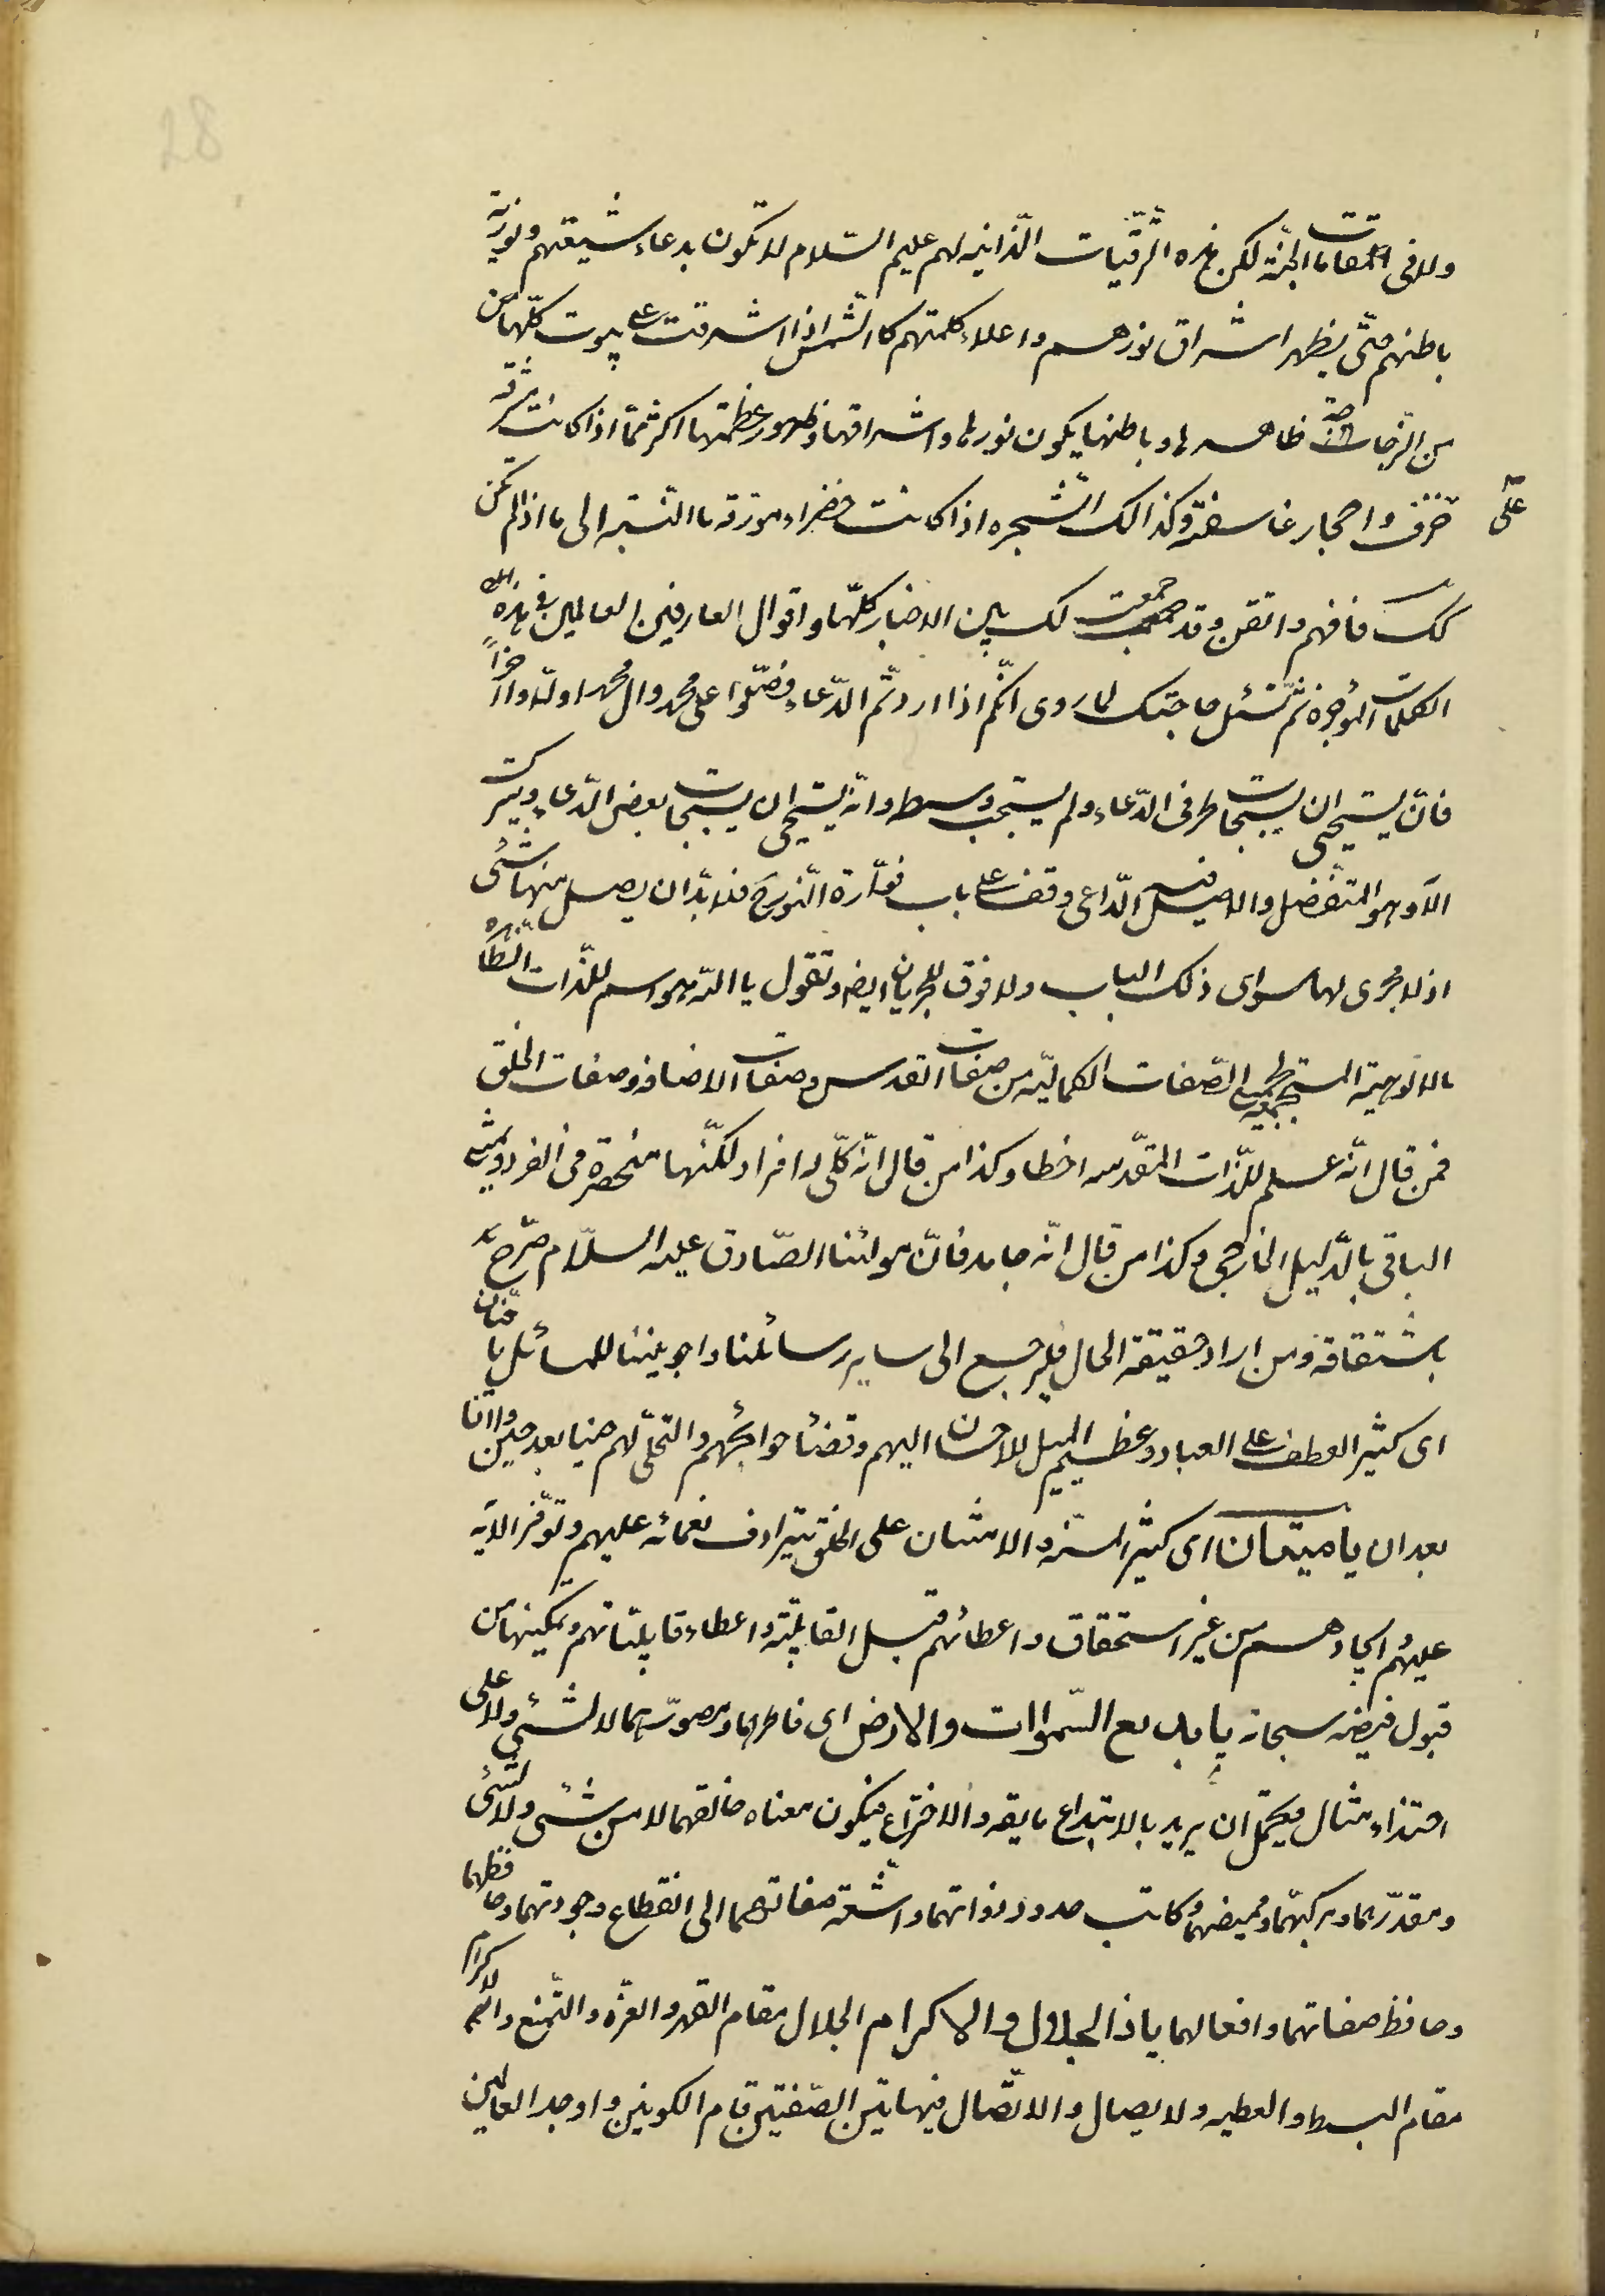 28
ولا فى مقامات الجنّة لكن هذه الترقّيات الذاتيه لهم عليهم السّلام لا تكون بدعاء شيعتهم ونوريّة
باطنهم حتّى يظهر اشراق نورهم واعلاء كلمتهم كالشّمس اذا اشرقت على بيوت كلّها من
من الزجاجات ظاهرها وباطنها يكون نورها واشراقها وظهور عظمتها اكثر ممّا اذا كانت مشرقة
على خزف واحجار غاسقة وكذالك الشجره اذا كانت خضراء مورقه بالنّسبة الى ما اذا لم تكن
كك فافهم واتقن وقد جمعت لك بين الاخبار كلّها واقوال العارفين العالمين فى هذه
الكلمات الموجزه ثمّ تسئل حاجتك لما روى انّكم اذا اردتم الدّعاء فصلّوا على محمد وال محمد اولا واخراً
فانّ يستحيى ان يستجاب طرفى الدّعاء ولم يستجب وسطه وانّه يستحيى ان يستجاب بعض الدّعاء ويترك
الاخر وهو المتفضل والاصيل فيه الدّاعى وقف على باب فوّارة النّور فلا بدّ ان يصل منها شئى
اذ لا مجرى لها سواى ذلك الباب ولا فوق للجريان ايضا وتقول يا اللّه هو اسم للذّات الظّاهره
بالالوهيّة المستجمع لجميع الصّفات الكماليّه من صفات القدس وصفات الاضافه وصفات الخلق
فمن قال انّه علم للذّات المقدّسه اخطا وكذا من قال انّه كلّى له افراد لكنّها منحصرة فى الفرد ويمتنع
الباقى بالدّليل الخارجى وكذا من قال انّه جامد فانّ مولانا الصّادق عليه السلّام صرّح
باشتقاقه ومن اراد حقيقة الحال فليرجع الى ساير رسائلنا واجوبتنا للمسائل يا حنّان
اى كثير العطف على العباد وعظيم الميل للاحسان اليهم وقضاء حوائجهم والتجلّى لهم حينا بعد حين وانا
بعد ان يا منّان اى كثير المنّه والامتنان على الخلق بترادف نعمائه عليهم وتوفّر آلائه
عليهم وايجادهم من غير استحقاق واعطائهم قبل القابليّة واعطاء قابليّاتهم وتمكينها من
قبول فيضه سبحانه يا بديع السّموات والارض اى فاطرهما ومصوّرهما لا لشئى ولا على
احتذاء مثال ويحتمل ان يريد بالابتداع ما يقرء الاختراع فيكون معناه خالقهما لا من شئى ولا لشئى
ومقدّرهما ومركّبهما ومميضهما وكاتب حدود ذواتهما واشعّة صفاتهما الى انقطاع وجودتهما وحافظهما
وحافظ صفاتهما وافعالهما يا ذا الجلال والاكرام الجلال مقام القهر والعزّه والتمنّع والاكرام
مقام البسط والعطيه والايصال والاتّصال فبهاتين الصّفتين قام الكونين واوجد العالمين